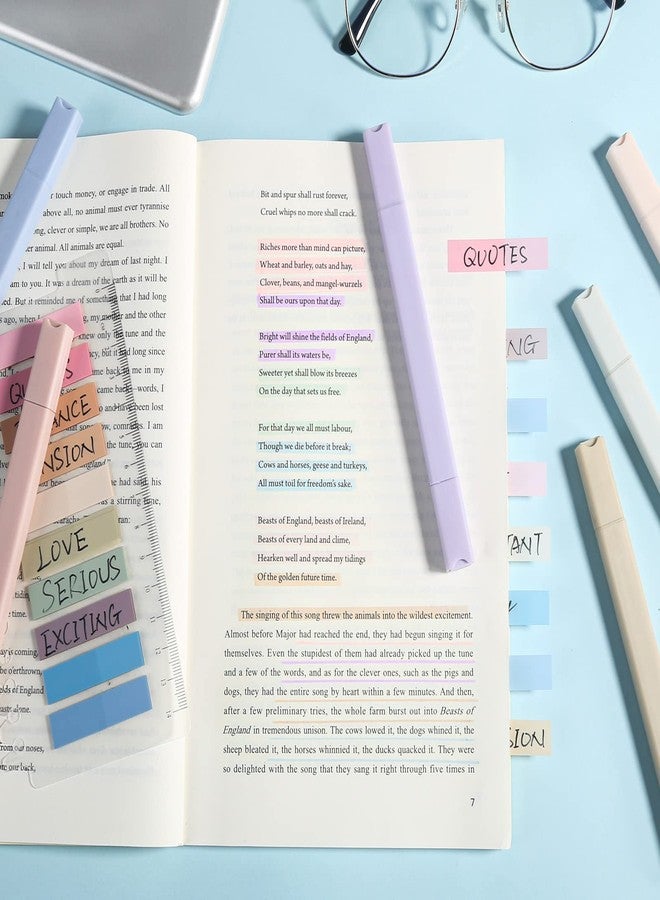 touch money, or engage in trade. All
above all, no animal must ever tyrannise
clever or simple, we are all brothers. No
animal. All animals are equal.
I will tell you about my dream of last night. I
to you. It was a dream of the earth as it will be
But it reminded me of something that I had long
ago, when my mother and the other
knew only the tune and the
but it had long since
came back to me in my
came back—words, I
and have been lost
song, comrades. I am
the tune, you can
had said, his
a stirring tune,
time.
is coming,
o'erthrown,
England
alone.
from our noses,
our back,
LOVE
SERIOUS
EXCITING
Bit and spur shall rust forever,
Cruel whips no more shall crack.
Riches more than mind can picture,
Wheat and barley, oats and hay,
Clover, beans, and mangel-wurzels
Shall be ours upon that day.
Bright will shine the fields of England,
Purer shall its waters be,
Sweeter yet shall blow its breezes
On the day that sets us free.
For that day we all must labour,
Though we die before it break;
Cows and horses, geese and turkeys,
All must toil for freedom's sake.
Beasts of England, beasts of Ireland,
Beasts of every land and clime,
Hearken well and spread my tidings
Of the golden future time.
The singing of this song threw the animals into the wildest excitement.
Almost before Major had reached the end, they had begun singing it for
themselves. Even the stupidest of them had already picked up the tune
and a few of the words, and as for the clever ones, such as the pigs and
dogs, they had the entire song by heart within a few minutes. And then,
after a few preliminary tries, the whole farm burst out into Beasts of
England in tremendous unison. The cows lowed it, the dogs whined it, the
sheep bleated it, the horses whinnied it, the ducks quacked it. They were
so delighted with the song that they sang it right through five times in
7
QUOTES
NG
TANT
SION